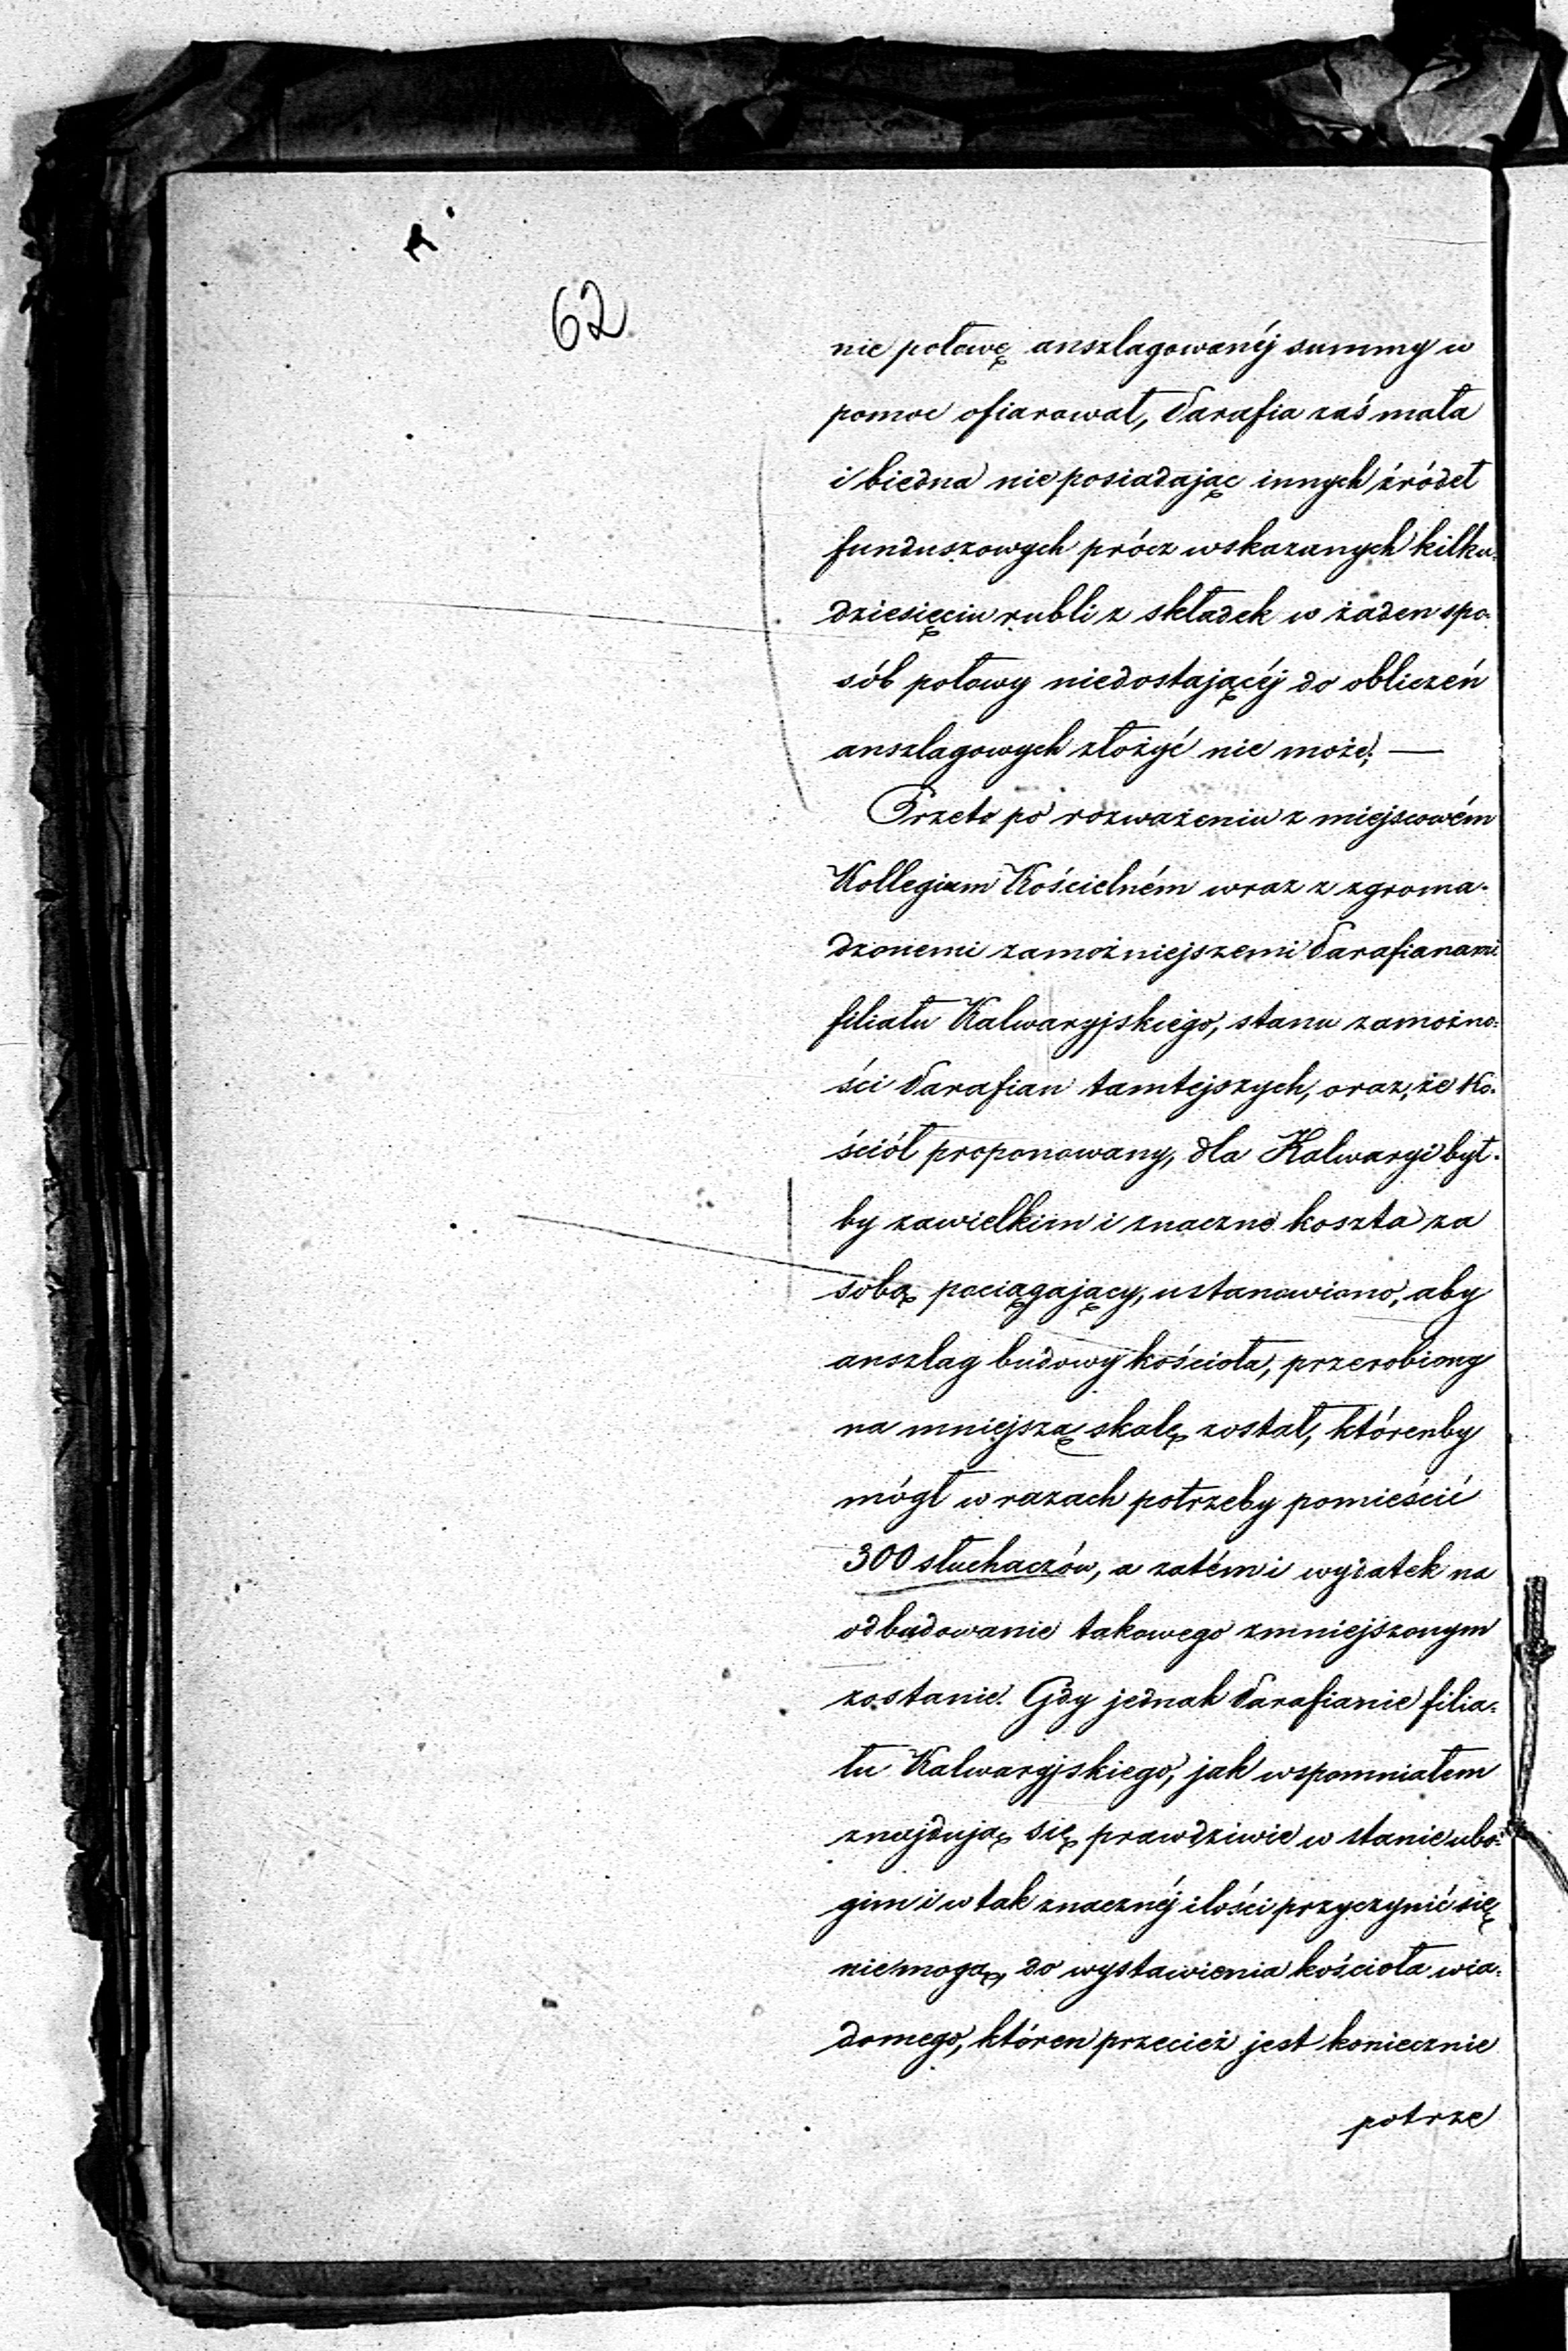 62
nie połowę anszlagowanéj summy w
pomoc ofiarował, Parafia zaś mała
i biedna nie posiadając innych źródeł
funduszowych prócz wskazanych kilku-
dziesięciu rubli z składek w żaden spo-
sób połowy niedostającéj do obliczeń
anszlagowych złożyć nie może; —
Przeto po rozważeniu z miejscowém
Kollegium Kościelném wraz z zgroma-
dzonemi zamożniejszemi Parafianami
filiału Kalwaryjskiego, stanu zamożno-
ści Parafian tamtejszych, oraz, że Ko-
ściół proponowany, dla Kalwaryi był-
by zawielkim i znaczne koszta za
sobą pociągający, ustanowiono, aby
anszlag budowy kościoła, przerobiony
na mniejszą skalę został, którenby
mógł w razach potrzeby pomieścić
300 słuchaczów, a zatém i wydatek na
odbudowanie takowego zmniejszonym
zostanie. Gdy jednak Parafianie filia-
łu Kalwaryjskiego, jak wspomniałem
znajdują się prawdziwie w stanie ubo-
gim i w tak znacznéj ilości przyczynić się
nie mogą, do wystawienia kościoła wia-
domego, któren przecież jest koniecznie
potrze